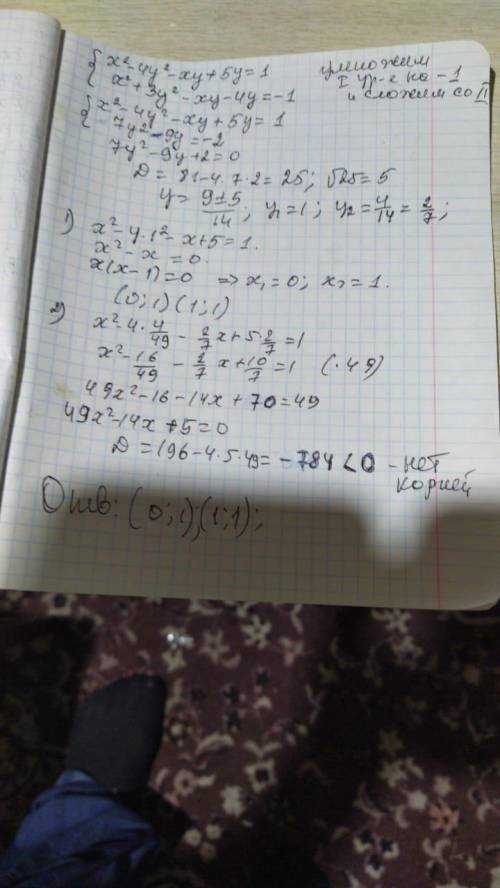 { x²-4y²-xy+5y=1
x²+3y²-xy-4y=-1
умножим
I ур-е на -1
и сложим со II
{ x²-4y²-xy+5y=1
7y²-9y=-2
7y²-9y+2=0
D=81-4·7·2=25; √25=5
y=(9±5)/14, y₁=1; y₂=4/14=2/7;
1) x²-4·1²-x+5=1.
x²-x=0.
x(x-1)=0 => x₁=0; x₂=1.
(0;1)(1;1)
2) x²-4·4/49-2/7x+5·2/7=1
x²-16/49-2/7x+10/7=1 (·49)
49x²-16-14x+70=49
49x²-14x+5=0
D=196-4·5·49=-784<0 - нет
корней
Отв: (0;1);(1;1);